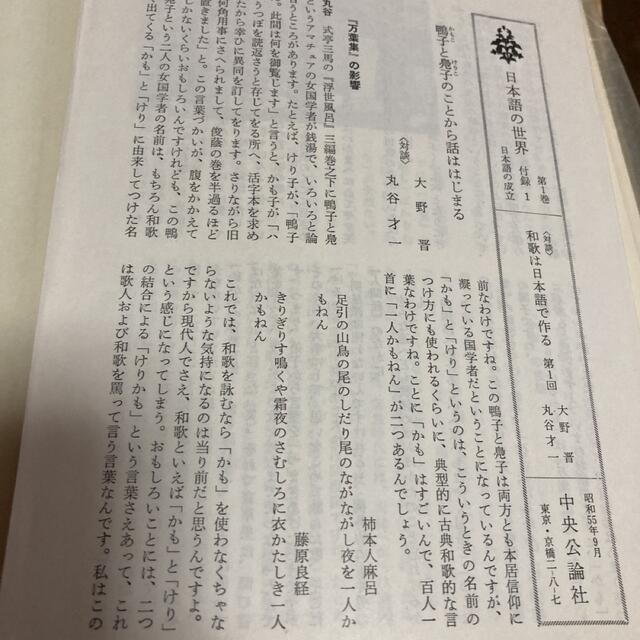 日本語の世界
第1巻
付録1
日本語の成立
〈対談〉
和歌は日本語で作る
第1回
大野晋
丸谷才一
昭和55年9月
中央公論社
東京・京橋二-八-七
鴨子と鳧子のことから話ははじまる
かもこ
けりこ
〈対談〉
大野晋
丸谷才一
『万葉集』の影響
丸谷 式亭三馬の『浮世風呂』三編巻之下に鴨子と鳧
というアマチュアの女国学者が銭湯で、いろいろと論
うところがあります。たとえば、けり子が、「鴨子
。此間は何を御覧じます」と言うと、かも子が「ハ
うつぼを読返さうと存じてをる所へ、活字本を求め
たから幸ひに異同を訂してをります。さりながら旧
何角用事にさへられまして、俊蔭の巻を半過るほど
置きました」と。この言葉づかいが、腹をかかえて
しかないくらいおもしろいんですけれども、この鴨
鳧子という二人の女国学者の名前は、もちろん和歌
出てくる「かも」と「けり」に由来してつけた名
前なわけですね。この鴨子と鳧子は両方とも本居信仰に
凝っている国学者だということになっているんですが、
「かも」と「けり」というのは、こういうときの名前の
つけ方にも使われるくらいに、典型的に古典和歌的な言
葉なわけですね。ことに「かも」はすごいんで、百人一
首に「一人かもねん」が二つあるんでしょう。
柿本人麻呂
足引の山鳥の尾のしだり尾のながながし夜を一人か
もねん
藤原良経
きりぎりす鳴くや霜夜のさむしろに衣かたしき一人
かもねん
これでは、和歌を詠むなら「かも」を使わなくちゃな
らないような気持になるのは当り前だと思うんですよ。
ですから現代人でさえ、和歌といえば「かも」と「けり」
という感じになってしまう。おもしろいことには、二つ
の結合による「けりかも」という言葉さえあって、これ
は歌人および和歌を罵って言う言葉なんです。私はこの